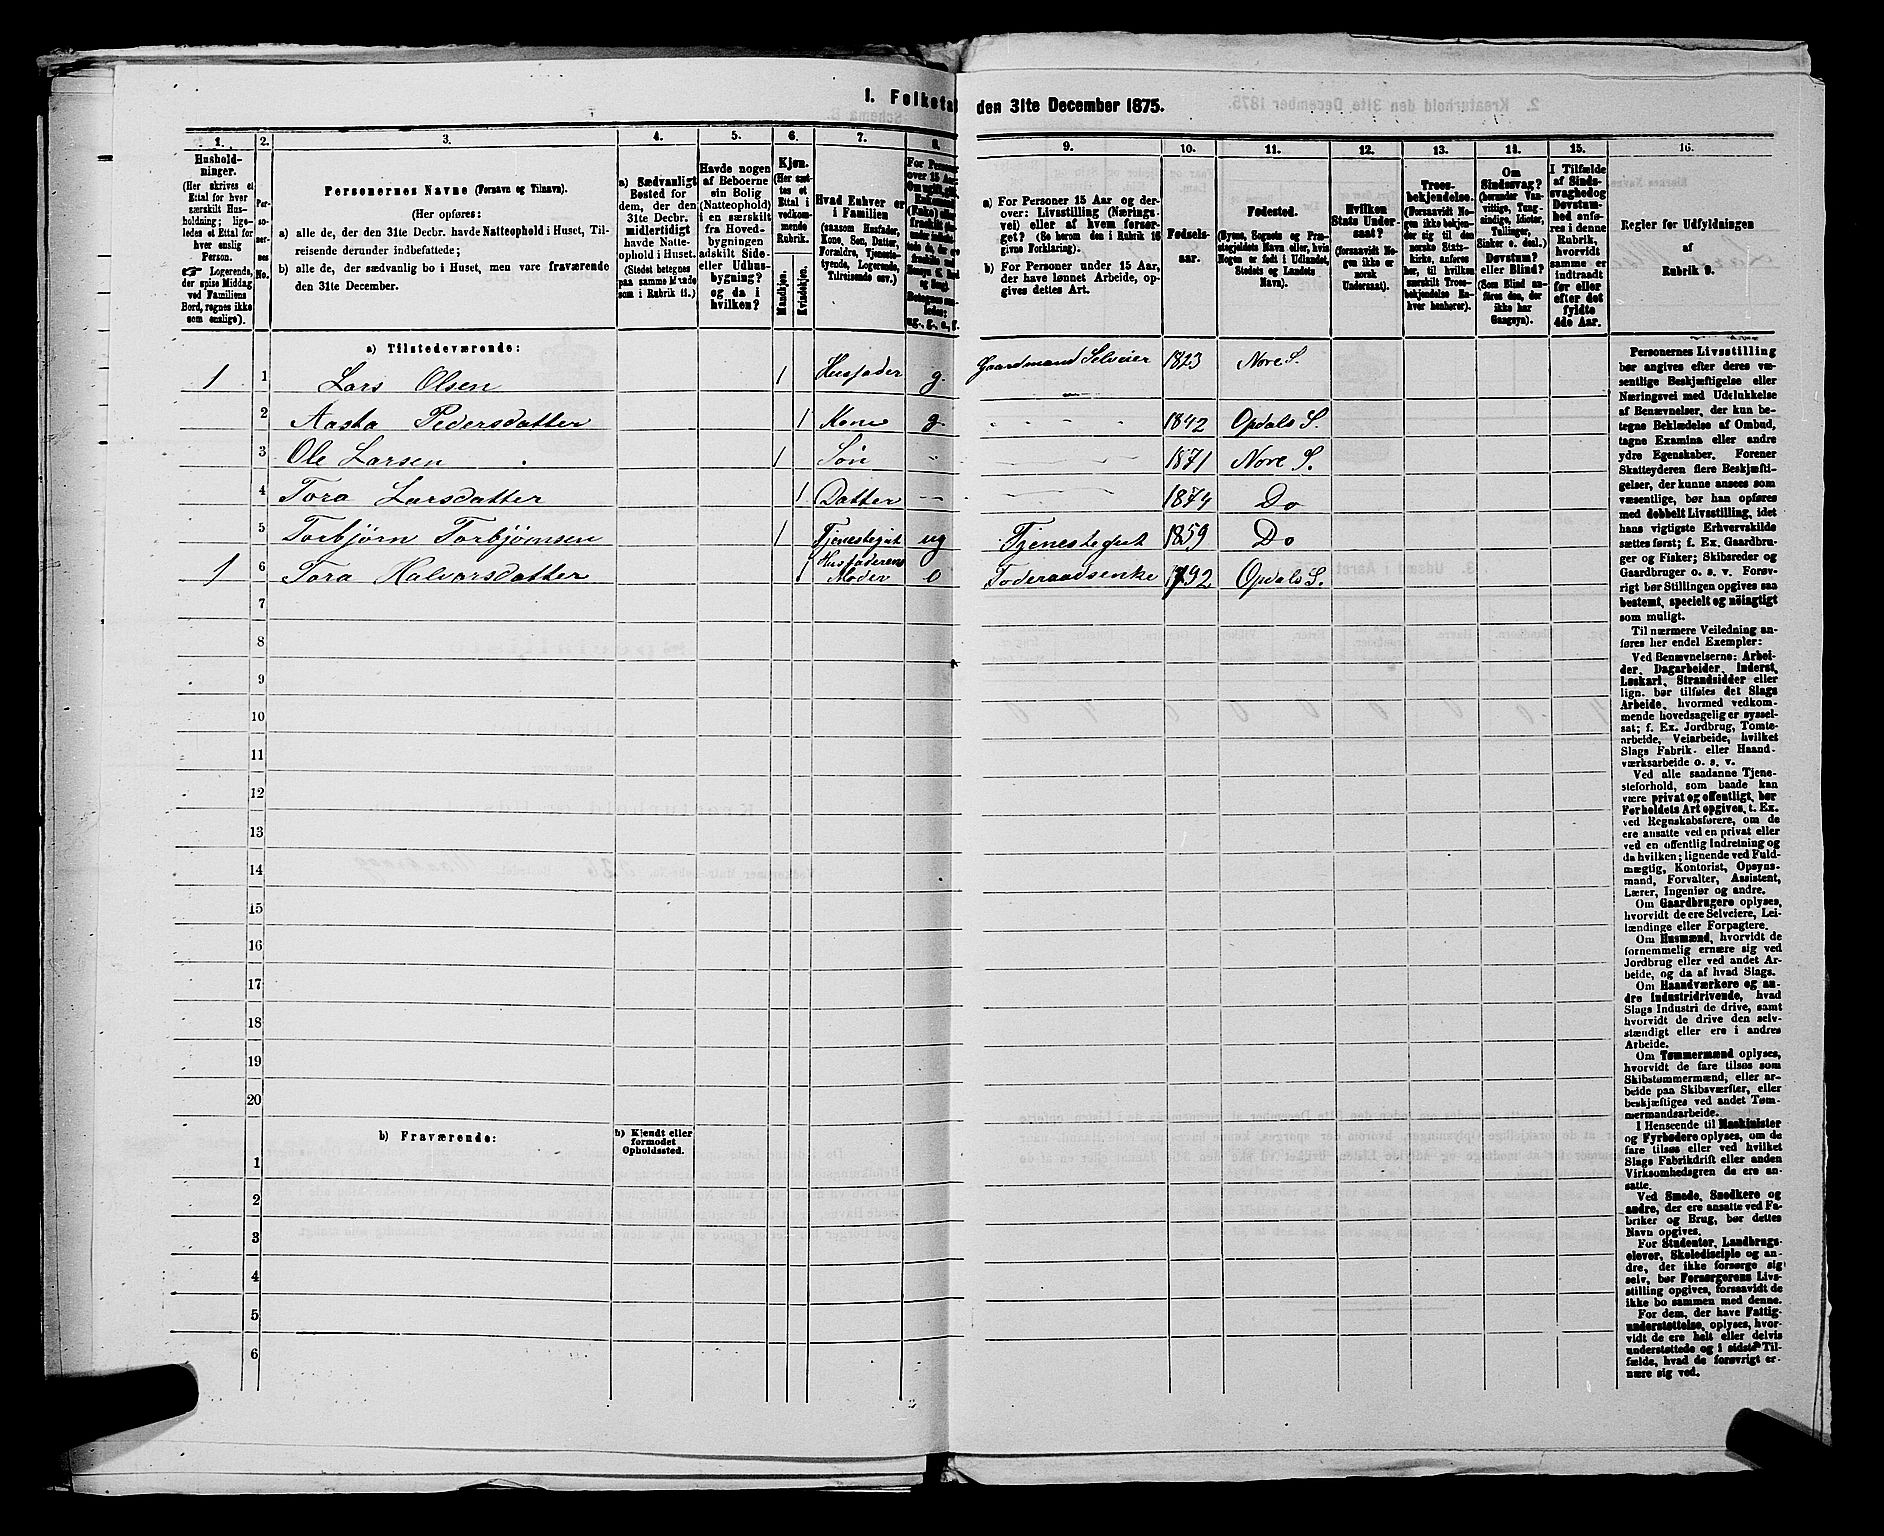 I. Folketæl den 31te December 1875.
1. 2. 3. 4. 5. 6. 7. 8. 9. 10. 11. 12. 13. 14. 15. 16.
Husholdninger.
(Her skrives et Ettal for hver særskilt Husholdning; ligeledes et Ettal for hver enslig Person.
☛ Logerende, der spise Middag ved Familiens Bord, regnes ikke som enslige).
Personernes No.
Personernes Navne (Fornavn og Tilnavn).
(Her opføres:
a) alle de, der den 31te Decbr. havde Natteophold i Huset, Tilreisende derunder indbefattede;
b) alle de, der sædvanlig bo i Huset, men vare fraværende den 31te December.
a) Sædvanligt Bosted for dem, der den 31te Decbr. midlertidigt havde Natteophold i Huset.
(Stedet betegnes paa samme Maade som i Rubrik 11.)
Havde nogen af Beboerne sin Bolig (Natteophold) i en særskilt fra Hovedbygningen adskilt Side- eller Udhusbygning? og da i hvilken?
Kjøn.
(Her sættes et Ettal i vedkommende Rubrik.
Mandkjøn.
Kvindekjøn.
Hvad Enhver er i Familien
(saasom Husfader, Kone, Søn, Datter, Forældre, Tjenestetyende, Logerende, Tilreisende osv.)
For Personer over 15 Aar:
a) For Personer 15 Aar og derover: Livsstilling (Næringsvei) eller af hvem forsørget? (Se herom den i Rubrik 16 givne Forklaring).
b) For Personer under 15 Aar, der have lønnet Arbeide, opgives dettes Art.
Fødselsaar.
Fødested.
(Byens, Sognets og Præstegjeldets Navn eller, hvis Nogen er født i Udlandet, Stedets og Landets Navn).
Hvilken Stats Undersaat?
(forsaavidt Nogen ikke er norsk Undersaat).
Troesbekjendelse.
(Forsaavidt Nogen ikke bekjender sig til den norske Statskirke, anføres her, til hvilken særskilt Troesbekjendelse Enhver henhører).
Om Sindssvag? (herunder Vanvittige, Tungsindige, Idioter, Tullinger, Sinker o. desl.)
Døvstum? eller Blind?
(Som Blind anføres den, der ikke har Gangsyn).
I Tilfælde af Sindssvaghed og Døvstumhed anføres i denne Rubrik, hvorvidt samme er indtraadt før eller efter det fyldte 4de Aar.
Regler for Udfyldningen
af
Rubrik 9.
a) Tilstedeværende:
1 1 Lars Olsen 1 Husfader g. Gaardmand Selveier 1823 Nore S.
2 Aasta Pedersdatter 1 Kone g. 1842 Opdals S.
3 Ole Larsen 1 Søn 1871 Nore S.
4 Tora Larsdatter 1 Datter 1874 Do
5 Torbjørn Torbjørnsen 1 Tjenestegut ug Tjenestegut 1859 Do
1 6 Tora Halvorsdatter 1 Husfaderens Moder Foderaadsenke 1792 Opdals S.
7
8
9
10
11
12
13
14
15
16
17
18
19
20
b) Fraværende:
b) Kjendt eller formodet Opholdssted.
1
2
3
4
5
6
Personernes Livsstilling
bør angives efter deres væ-
sentlige Beskjæftigelse eller
Næringsvei med Udelukkelse
af Benævnelser, der kun be-
tegne Beklædelse af Ombud,
tagne Examina eller andre
ydre Egenskaber. Forener
Skatteyderen flere Beskjæfti-
gelser, der kunne ansees som
væsentlige, bør han opføres
med dobbelt Livsstilling, idet
hans vigtigste Erhvervskilde
sættes først; f. Ex. Gaardbru-
ger og Fisker; Skibsreder og
Gaardbruger o. s. v. Forøv-
rigt bør Stillingen opgives saa
bestemt, specielt og nøiagtigt
som muligt.
Til nærmere Veiledning an-
føres her endel Exempler:
Ved Benævnelserne: Arbei-
der, Dagarbeider, Inderst,
Løskarl, Strandsidder eller
lign. bør tilføies det Slags
Arbeide, hvormed vedkom-
mende hovedsagelig er syssel-
sat; f. Ex. Jordbrug, Tomte-
arbeide, Veiarbeide, hvilket
Slags Fabrik- eller Haand-
værksarbeide o. s. v.
Ved alle saadanne Tjene-
steforhold, som baade kan
være privat og offentligt, bør
Forholdets Art opgives, t. Ex.
ved Regnskabsførere, om de
ere ansatte ved en privat eller
ved en offentlig Indretning og
da hvilken; lignende ved Fuld-
mægtig, Kontorist, Opsyns-
mand, Forvalter, Assistent,
Lærer, Ingeniør og andre.
Om Gaardbrugere oplyses,
hvorvidt de ere Selveiere, Lei-
lændinge eller Forpagtere.
Om Husmænd, hvorvidt de
fornemmelig ernære sig ved
Jordbrug eller ved andet Ar-
beide, og da af hvad Slags.
Om Haandværkere og an-
dre Industridrivende, hvad
Slags Industri de drive, samt
hvorvidt de drive den selv-
stændigt eller ere i andres
Arbeide.
Om Tømmermænd oplyses,
hvorvidt de fare tilsøs som
Skibstømmermænd, eller ar-
beide paa Skibsværfter, eller
beskjæftiges ved andet Tøm-
mermandsarbeide.
I Henseende til Maskinister
og Fyrbødere oplyses, om de
fare tilsøs eller ved hvilket
Slags Fabrikdrift eller anden
Virksomhedsgren de ere an-
satte.
Ved Smede, Snedkere og
andre, der ere ansatte ved Fa-
briker og Brug, bør dettes
Navn opgives.
For Studenter, Landbrugs-
elever, Skoledisciple og an-
dre, der ikke forsørge sig
selv, bør Forsørgerens Livs-
stilling opgives, forsaavidt de
ikke bo sammen med denne.
For dem, der have Fattig-
understøttelse, oplyses, hvor-
vidt de ere helt eller delvis
understøttede og i sidste Til-
fælde, hvad de forøvrigt er-
nære sig ved.